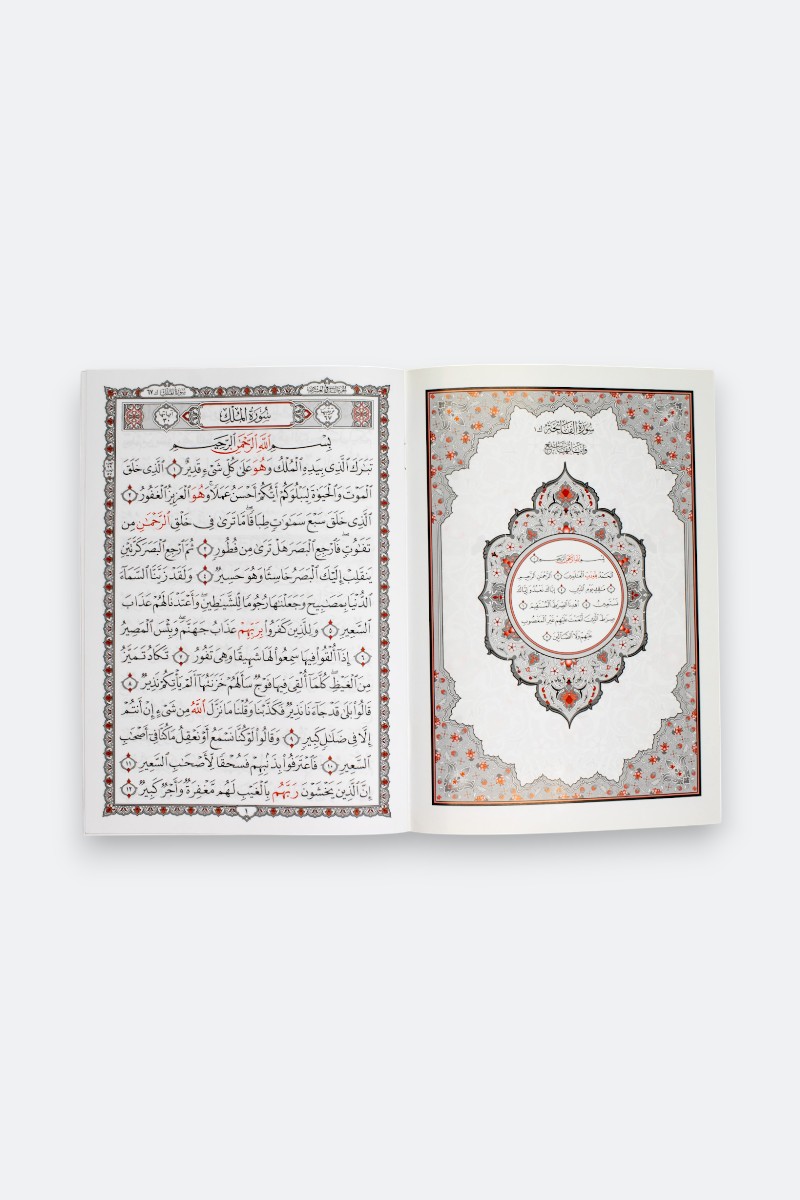 سُورَةُ الْفَاتِحَةِ ١
بِسْمِ ٱللَّهِ ٱلرَّحْمَٰنِ ٱلرَّحِيمِ ١
ٱلْحَمْدُ لِلَّهِ رَبِّ ٱلْعَٰلَمِينَ ٢ ٱلرَّحْمَٰنِ ٱلرَّحِيمِ
٣ مَٰلِكِ يَوْمِ ٱلدِّينِ ٤ إِيَّاكَ نَعْبُدُ وَإِيَّاكَ
نَسْتَعِينُ ٥ ٱهْدِنَا ٱلصِّرَٰطَ ٱلْمُسْتَقِيمَ ٦
صِرَٰطَ ٱلَّذِينَ أَنْعَمْتَ عَلَيْهِمْ غَيْرِ ٱلْمَغْضُوبِ
عَلَيْهِمْ وَلَا ٱلضَّآلِّينَ ٧
سُورَةُ المُلْك ٦٧
ترتيبها ٦٧
سُورَةُ المُلْكِ
آياتها ٣٠
بِسْمِ ٱللَّهِ ٱلرَّحْمَٰنِ ٱلرَّحِيمِ
تَبَٰرَكَ ٱلَّذِي بِيَدِهِ ٱلْمُلْكُ وَهُوَ عَلَىٰ كُلِّ شَيْءٍ قَدِيرٌ ١ ٱلَّذِي خَلَقَ
ٱلْمَوْتَ وَٱلْحَيَوٰةَ لِيَبْلُوَكُمْ أَيُّكُمْ أَحْسَنُ عَمَلًا وَهُوَ ٱلْعَزِيزُ ٱلْغَفُورُ ٢
ٱلَّذِي خَلَقَ سَبْعَ سَمَٰوَٰتٍ طِبَاقًا مَّا تَرَىٰ فِي خَلْقِ ٱلرَّحْمَٰنِ مِن
تَفَٰوُتٍ فَٱرْجِعِ ٱلْبَصَرَ هَلْ تَرَىٰ مِن فُطُورٍ ٣ ثُمَّ ٱرْجِعِ ٱلْبَصَرَ كَرَّتَيْنِ
يَنقَلِبْ إِلَيْكَ ٱلْبَصَرُ خَاسِئًا وَهُوَ حَسِيرٌ ٤ وَلَقَدْ زَيَّنَّا ٱلسَّمَآءَ
ٱلدُّنْيَا بِمَصَٰبِيحَ وَجَعَلْنَٰهَا رُجُومًا لِّلشَّيَٰطِينِ وَأَعْتَدْنَا لَهُمْ عَذَابَ
ٱلسَّعِيرِ ٥ وَلِلَّذِينَ كَفَرُوا۟ بِرَبِّهِمْ عَذَابُ جَهَنَّمَ وَبِئْسَ ٱلْمَصِيرُ
٦ إِذَآ أُلْقُوا۟ فِيهَا سَمِعُوا۟ لَهَا شَهِيقًا وَهِيَ تَفُورُ ٧ تَكَادُ تَمَيَّزُ
مِنَ ٱلْغَيْظِ كُلَّمَآ أُلْقِيَ فِيهَا فَوْجٌ سَأَلَهُمْ خَزَنَتُهَآ أَلَمْ يَأْتِكُمْ نَذِيرٌ ٨
قَالُوا۟ بَلَىٰ قَدْ جَآءَنَا نَذِيرٌ فَكَذَّبْنَا وَقُلْنَا مَا نَزَّلَ ٱللَّهُ مِن شَيْءٍ إِنْ أَنتُمْ
إِلَّا فِي ضَلَٰلٍ كَبِيرٍ ٩ وَقَالُوا۟ لَوْ كُنَّا نَسْمَعُ أَوْ نَعْقِلُ مَا كُنَّا فِيٓ أَصْحَٰبِ
ٱلسَّعِيرِ ١٠ فَٱعْتَرَفُوا۟ بِذَنۢبِهِمْ فَسُحْقًا لِّأَصْحَٰبِ ٱلسَّعِيرِ ١١
إِنَّ ٱلَّذِينَ يَخْشَوْنَ رَبَّهُم بِٱلْغَيْبِ لَهُم مَّغْفِرَةٌ وَأَجْرٌ كَبِيرٌ ١٢
١